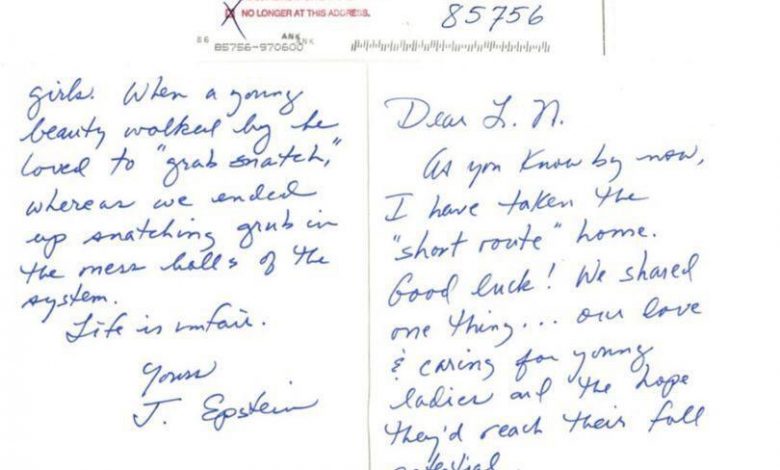 NO LONGER AT THIS ADDRESS.
85756
86
ANK
85756-970600
girls. When a young
beauty walked by he
loved to "grab snatch,"
whereas we ended
up snatching grub in
the mess halls of the
system.
Life is unfair.
Yours
J. Epstein
Dear L. N.
As you know by now,
I have taken the
"short route" home.
Good luck! We shared
one thing... our love
& caring for young
ladies and the hope
they'd reach their full